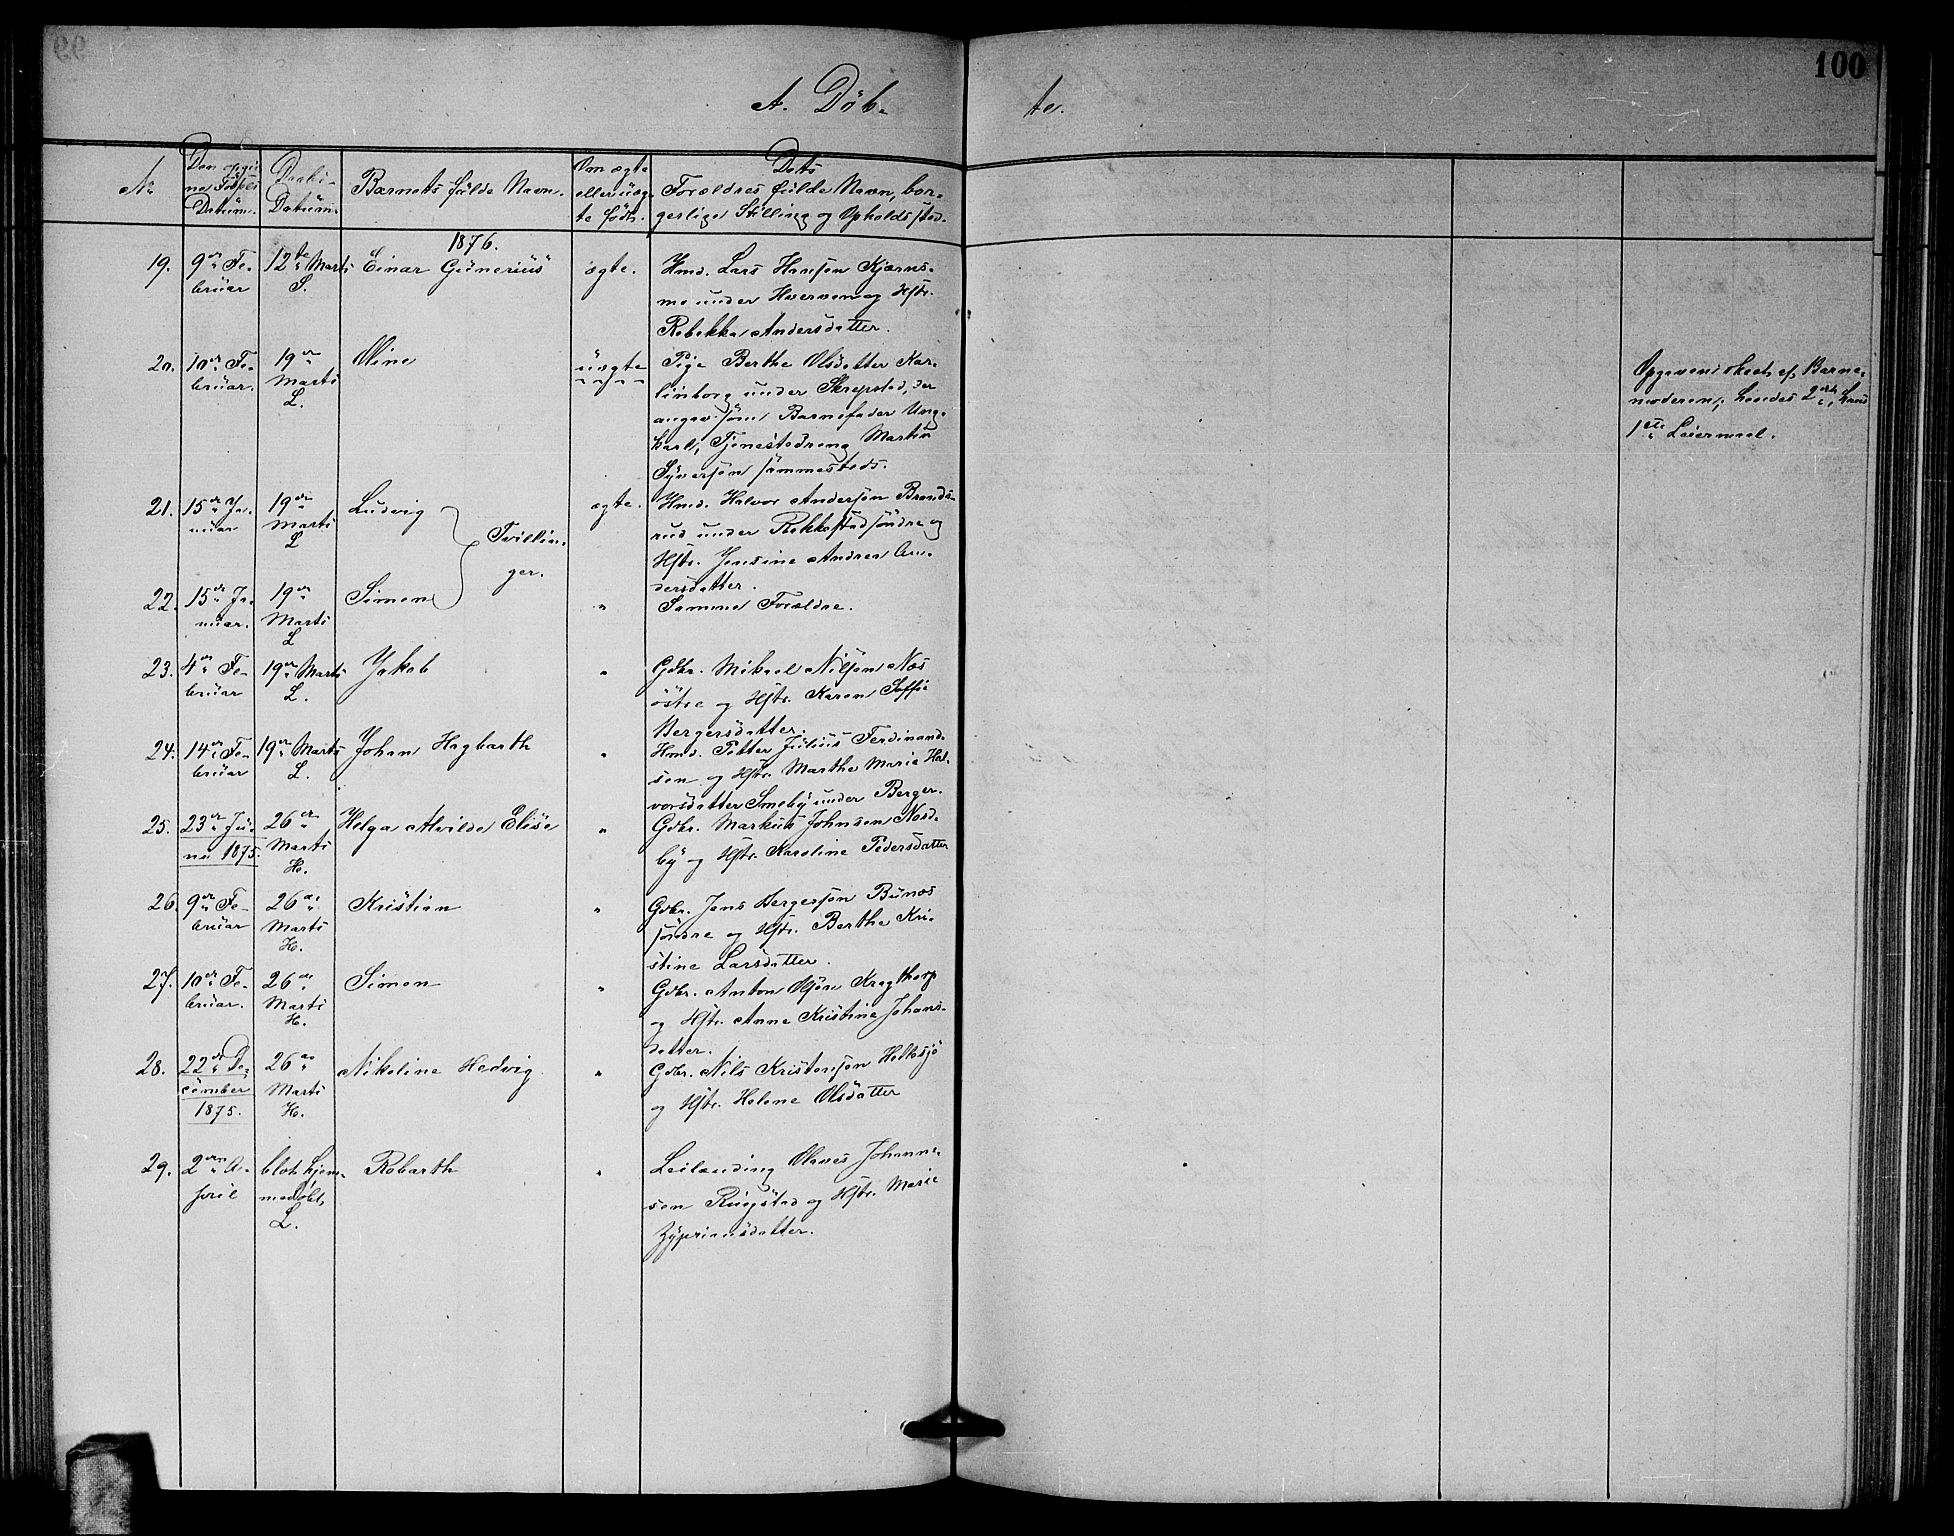 100
A. Döb-
te.
No
Den opgi-
ne Fødsels
Datüm.
Daabs-
Datüm.
Barnets fülde Navn.
Om ægte
eller üæg-
te født.
Dets
Forældres fülde Navn, bor-
gerlige Stilling og Opholdssted.
1876.
19.
9de Fe-
brüar
12te Marts
S.
Einar Günerius
ægte.
Hmd. Lars Hansen Kjærns-
mo under Hverven og Hstr.
Rebekka Andersdatter.
20.
10de Fe-
brüar.
19de
Marts
L.
Oline
üægte
Pige Berthe Olsdatter Kar-
linborg under Skrepstad, der
angav som Barnefader Ung-
karl, Tjenestedreng Martin
Syversen sammesteds.
Opgaven skeet af Barne-
moderen; hendes 2det, hans
1ste Leiermaal.
21.
15de Ja-
nüar
19de
Marts
L
Ludvig
Tvillin-
ger.
ægte.
Hmd. Halvor Andersen Brends-
rud under Rekkestad søndre og
Hstr. Jensine Andrea An-
dersdatter.
22.
15de Ja-
nüar.
19de
Marts
L
Simen
"
Samme Forældre.
23.
4de Fe-
brüar
19de Marts
L.
Jakob
"
Gdbr. Mikael Nilsen Næs
östre og Hstr. Karen Soffie
Bergersdatter.
24.
14de Fe-
brüar
19de Marts
L.
Johan Hagbarth
"
Hmd. Petter Julius Ferdinand-
sen og Hstr. Marthe Marie Hal-
vorsdatter Smeby under Berger.
25.
23de Jü-
ni 1875.
26de
Marts
H.
Helga Alvilde Elise
"
Gdbr. Markus Johnsen Nord-
by og Hstr. Karoline Pedersdatter
26.
9de Fe-
brüar
26de
Marts
H.
Kristian
"
Gdbr. Jens Bergersen Bünes
søndre og Hstr. Berthe Kri-
stine Larsdatter.
27.
10de Fe-
brüar.
26de
Marts
H.
Simen
"
Gdbr. Anton Olsen Kragthorp
og Hstr. Anne Kristine Johans-
datter.
28.
22de De-
cember
1875.
26de
Marts
H.
Nikoline Hedvig
"
Gdbr. Nils Kristensen Heltosjö
og Hstr. Helene Olsdatter
29.
2den A-
pril
blot hjem-
medøbt
L.
Robarth
"
Leilænding Olaves Johanne-
sen Ringstad og Hstr. Marie
Zypriansdatter.